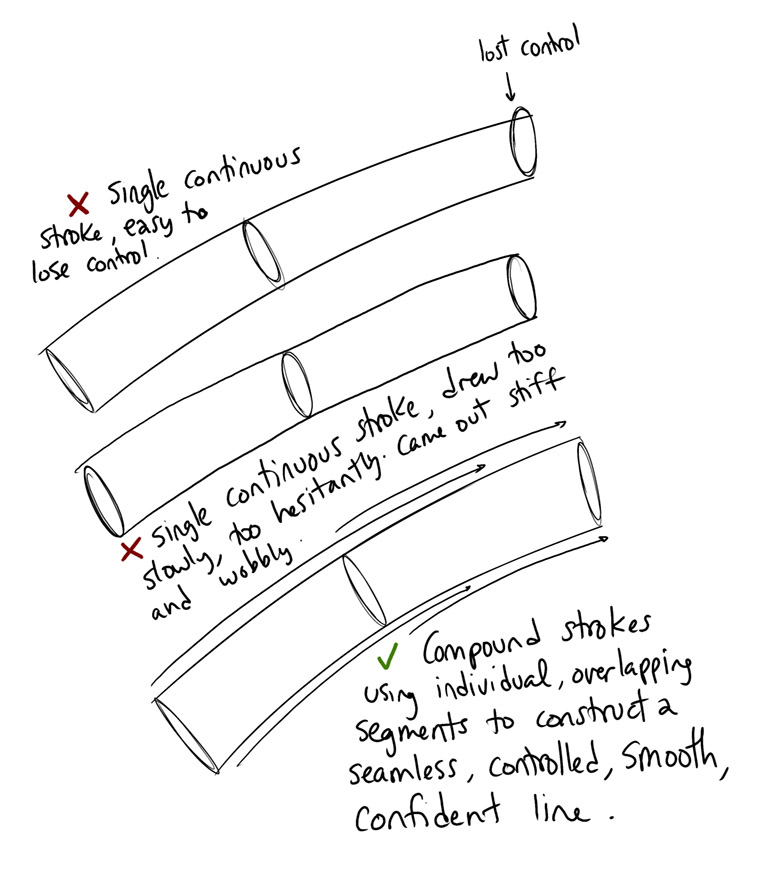 lost control
× Single continuous
stroke, easy to
lose control.
× Single continuous stroke, drew too
slowly, too hesitantly. Came out stiff
and wobbly.
✓ Compound strokes
using individual, overlapping
segments to construct a
seamless, controlled, smooth,
confident line.